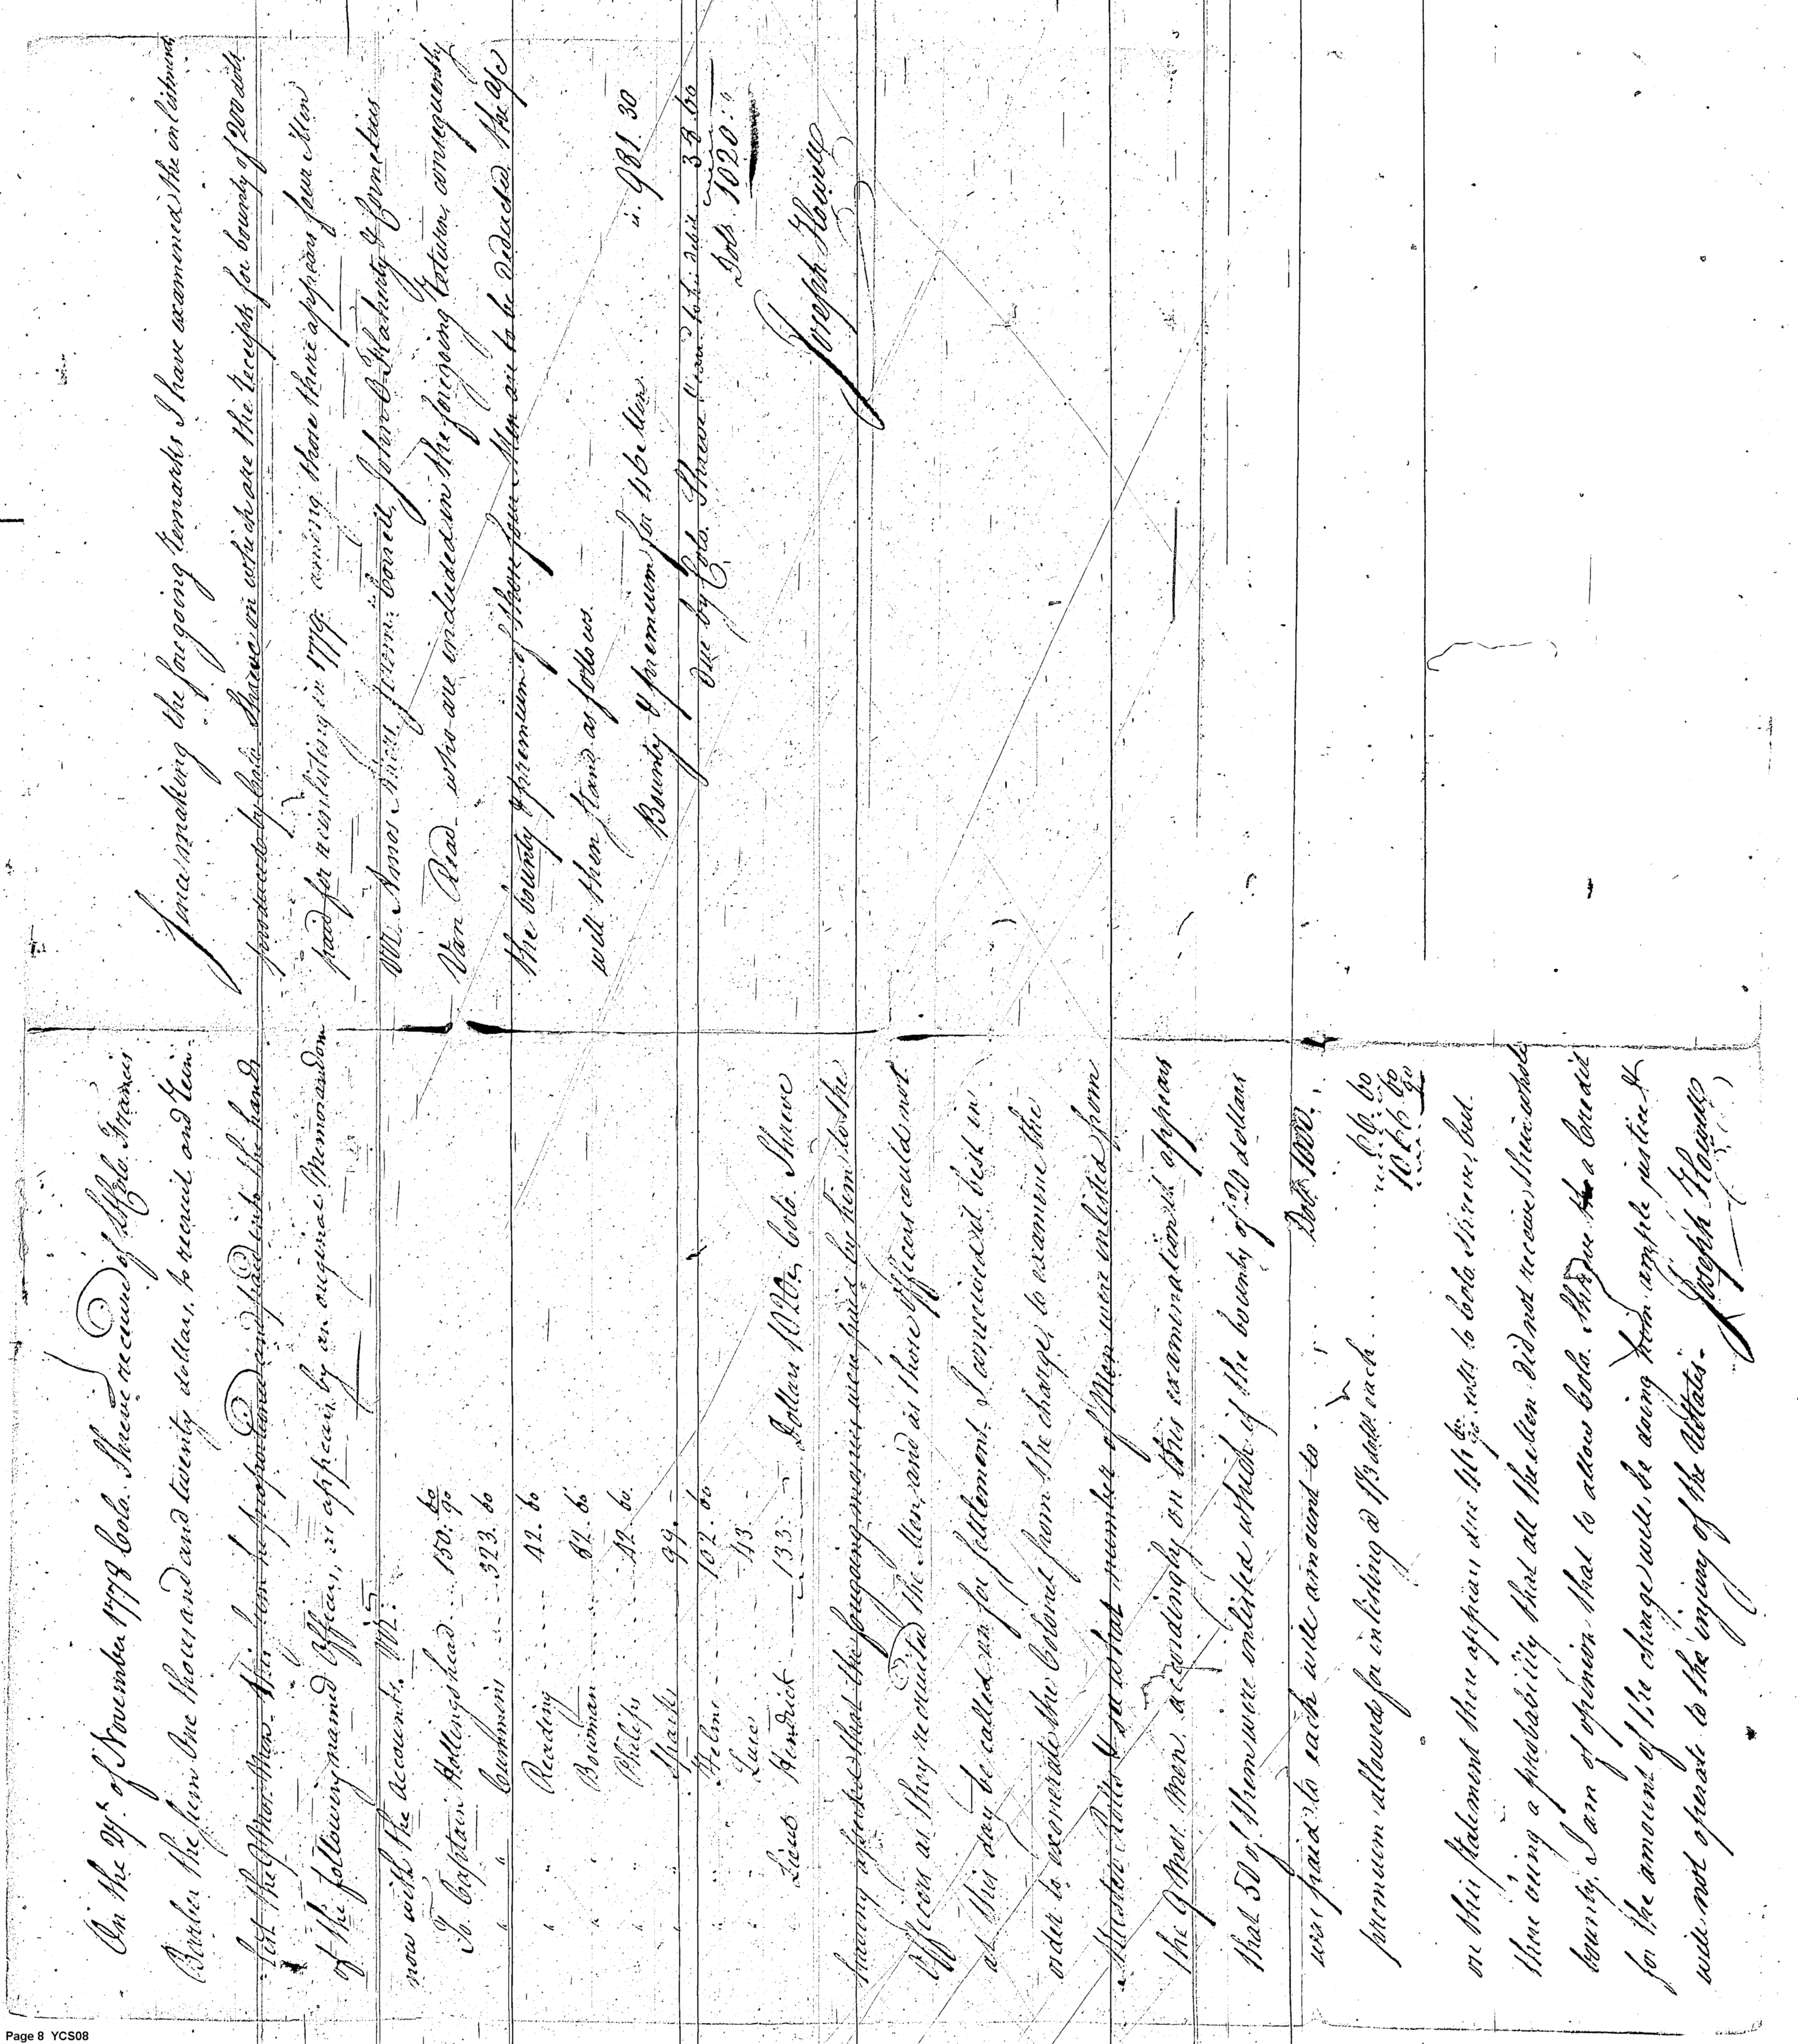 On the 27th of November 1778 Colo. Shreve received of Lt Colo. Francis
Barber the sum One thousand and twenty dollars, to recruit and Rein-
-list the 9 Mos. Men. This sum he proportioned and paid into the hands
of the following named Officers, as appears by an original Memorandom
now with the Accounts. Viz.
To Captain Hollingshead .... 150. 60/90
" " Cummins ..... 323. 60
" Reading ..... 42. 60
" Bowman ..... 82. 60
" Philips ..... 42. 60.
" Sparks ..... 99. -
" Helms ..... 102. 60
" Luce ..... 43. -
Lieut Hendrick ..... 133. - Dollars 1020. Colo. Shreve
having asserted that the foregoing monies were paid by him to the
Officers as they recruited the Men, and as those Officers could not
at this day be called on for settlement. I conceived it best in
order to exonerate the Colonel from the charge, to examine the
Muster Rolls & see what number of Men were inlisted from
the 9 Mos. Men. accordingly on this examination it appears
that 50 of them were enlisted which if the bounty of 20 dollars
was paid to each will amount to .... Dolls 1000.
premium allowed for inlisting @ 1 1/3 dolls each .... 66. 60
1066 60/90
on this statement there appears due 46 60/90 dolls to Colo. Shreve, but
there being a probability that all the Men did not receive their whole
bounty, I am of opinion that to allow Colo. Shreve a Credit
for the amount of the charge will be doing him ample justice &
will not operate to the injury of the UStates.
Joseph Howell
Since making the foregoing remarks I have examined the inlistments
produced by Colo. Shreve in which are the receipts for bounty of 200 dolls
paid for reinlisting in 1779. among those there appears four Men
Viz. Amos
John O Flaherty & Cornelius
Van Read - who are included in the foregoing return, consequently
the bounty & premium of those four Men are to be deducted. The a/c
will then stand as follows.
Bounty & premium for 46 Men .. 981. 30
due by Colo. Shreve & carrd to his debit 38 60
Dols. 1020. "
Joseph Howell
Page 8 YCS08